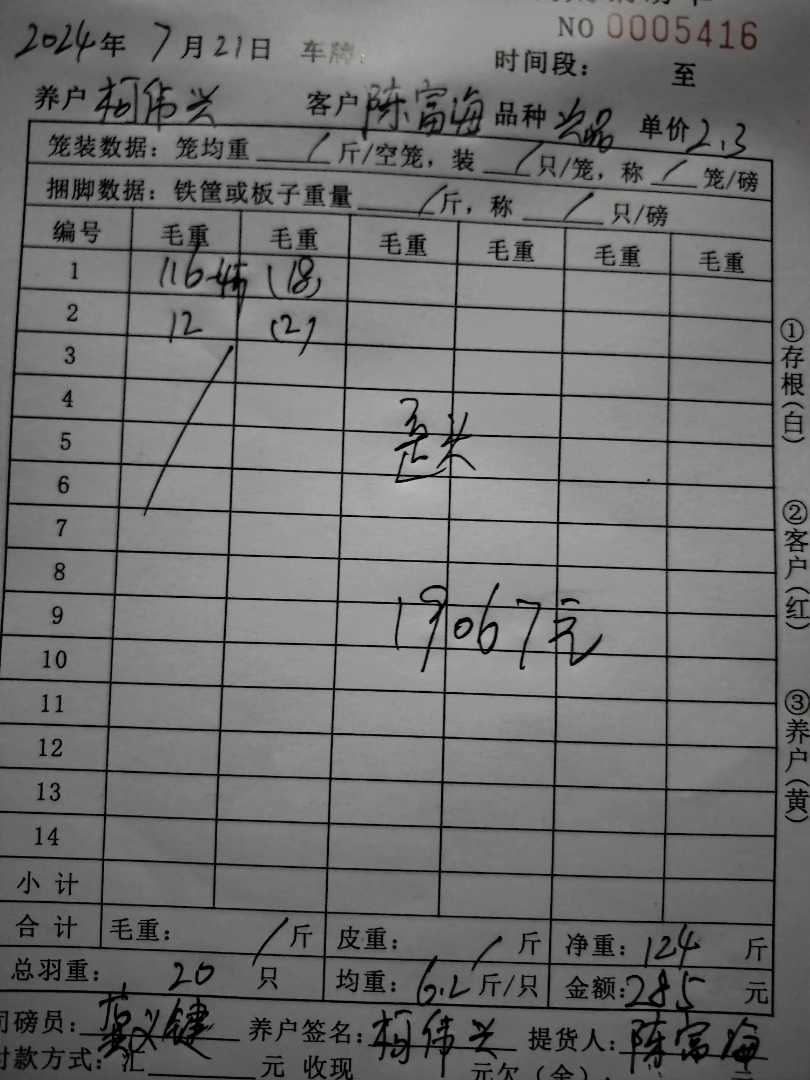 NO 0005416
2024年 7月21日 车牌: 时间段: 至
养户 柯伟兴 客户 陈富海 品种 次品 单价 2.3
笼装数据:笼均重 / 斤/空笼,装 / 只/笼,称 / 笼/磅
捆脚数据:铁筐或板子重量 / 斤,称 / 只/磅
编号 毛重 毛重 毛重 毛重 毛重 毛重
1 116 (18)
2 12 (2)
3
4
歪头
5
6
7
8
9 19067元
10
11
12
13
14
小计
合计 毛重: / 斤 皮重: / 斤 净重: 124 斤
总羽重: 20 只 均重: 6.2 斤/只 金额: 285 元
司磅员: 养户签名: 柯伟兴 提货人: 陈富海
付款方式:汇 元 收现 元欠(余)
①存根(白)
②客户(红)
③养户(黄)